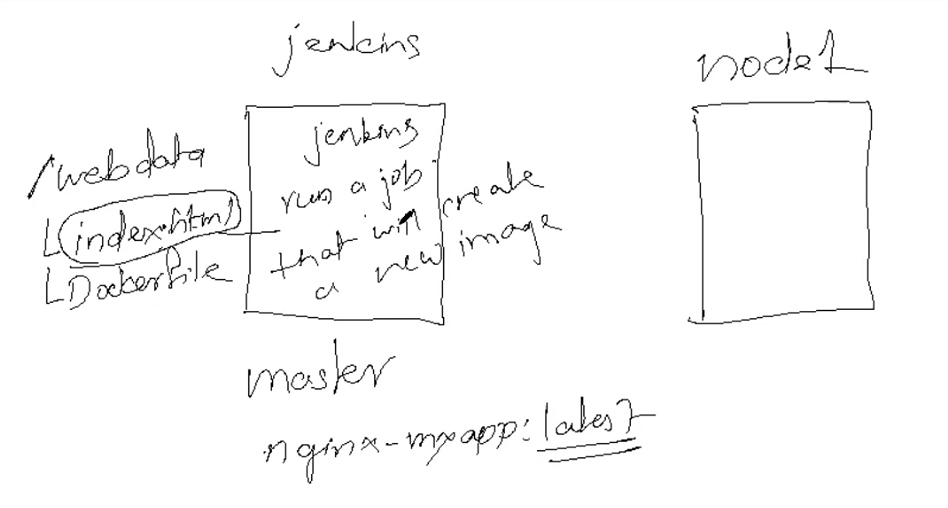 jenkins
node1
/webdata
index.html
Dockerfile
jenkins
run a job
that will create
a new image
master
nginx-myapp:latest